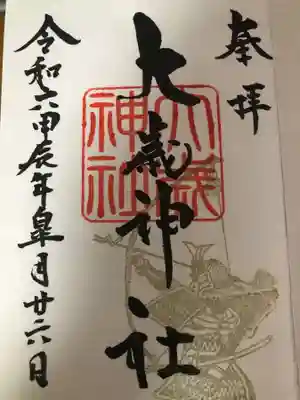 奉拝
大歳神社
大歳
神社
令和六甲辰年皐月廿六日